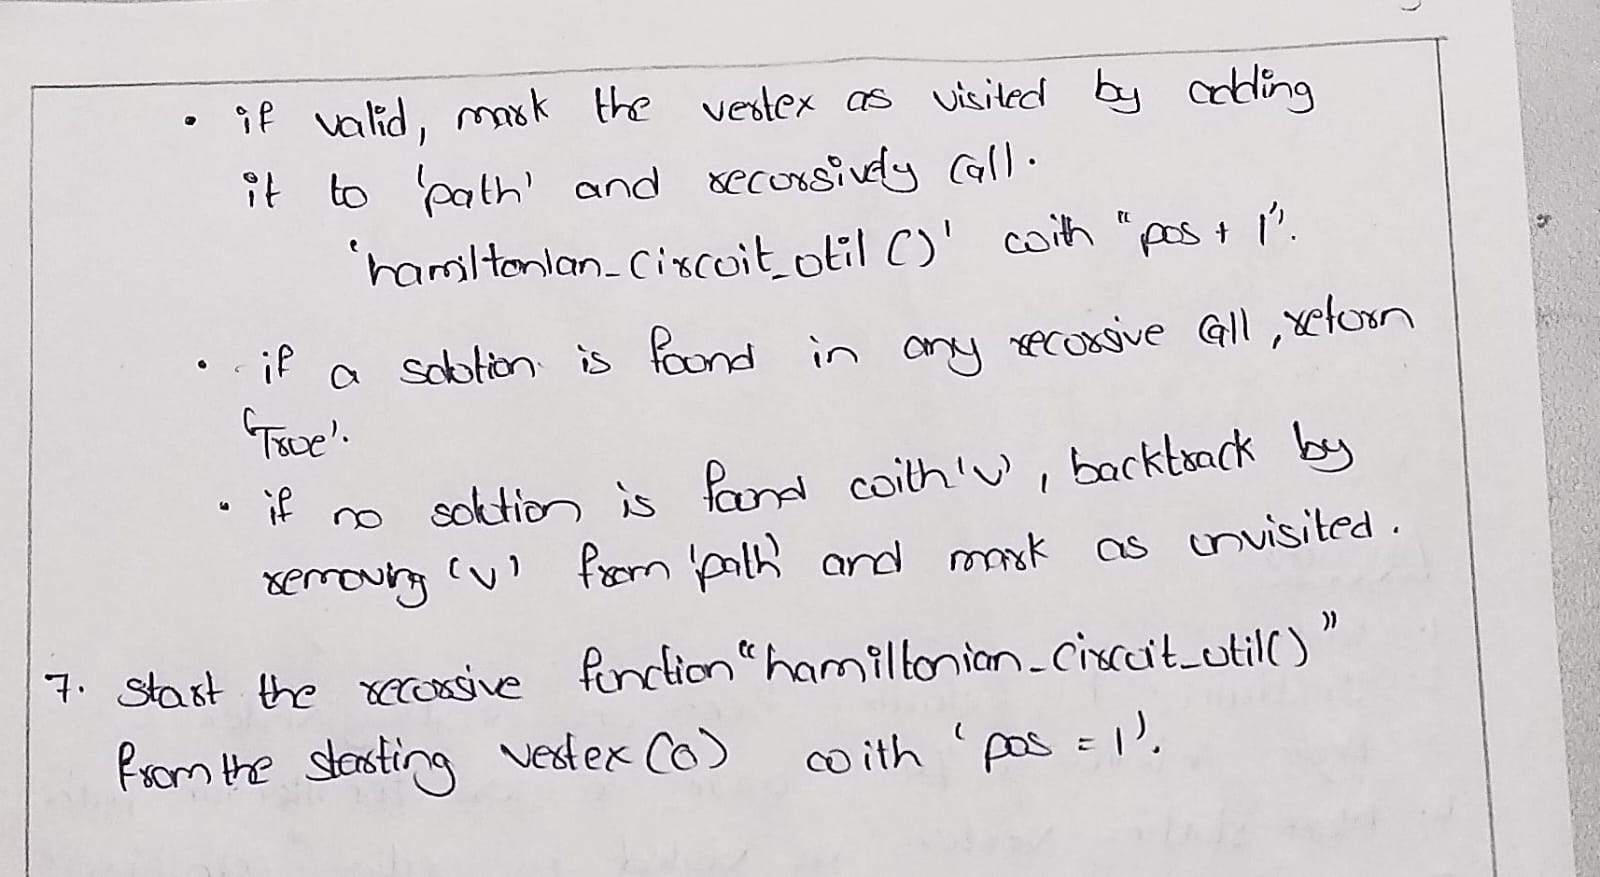 • if valid, mark the vertex as visited by adding
it to 'path' and recursively call.
'hamiltonian_circuit_util ()' with "pos + 1".
• if a solution is found in any recursive call, return
'True'.
• if no solution is found with 'v', backtrack by
removing 'v' from 'path' and mark as unvisited.
7. Start the recursive function "hamiltonian_circuit_util()"
from the starting vertex (0) with 'pos = 1'.